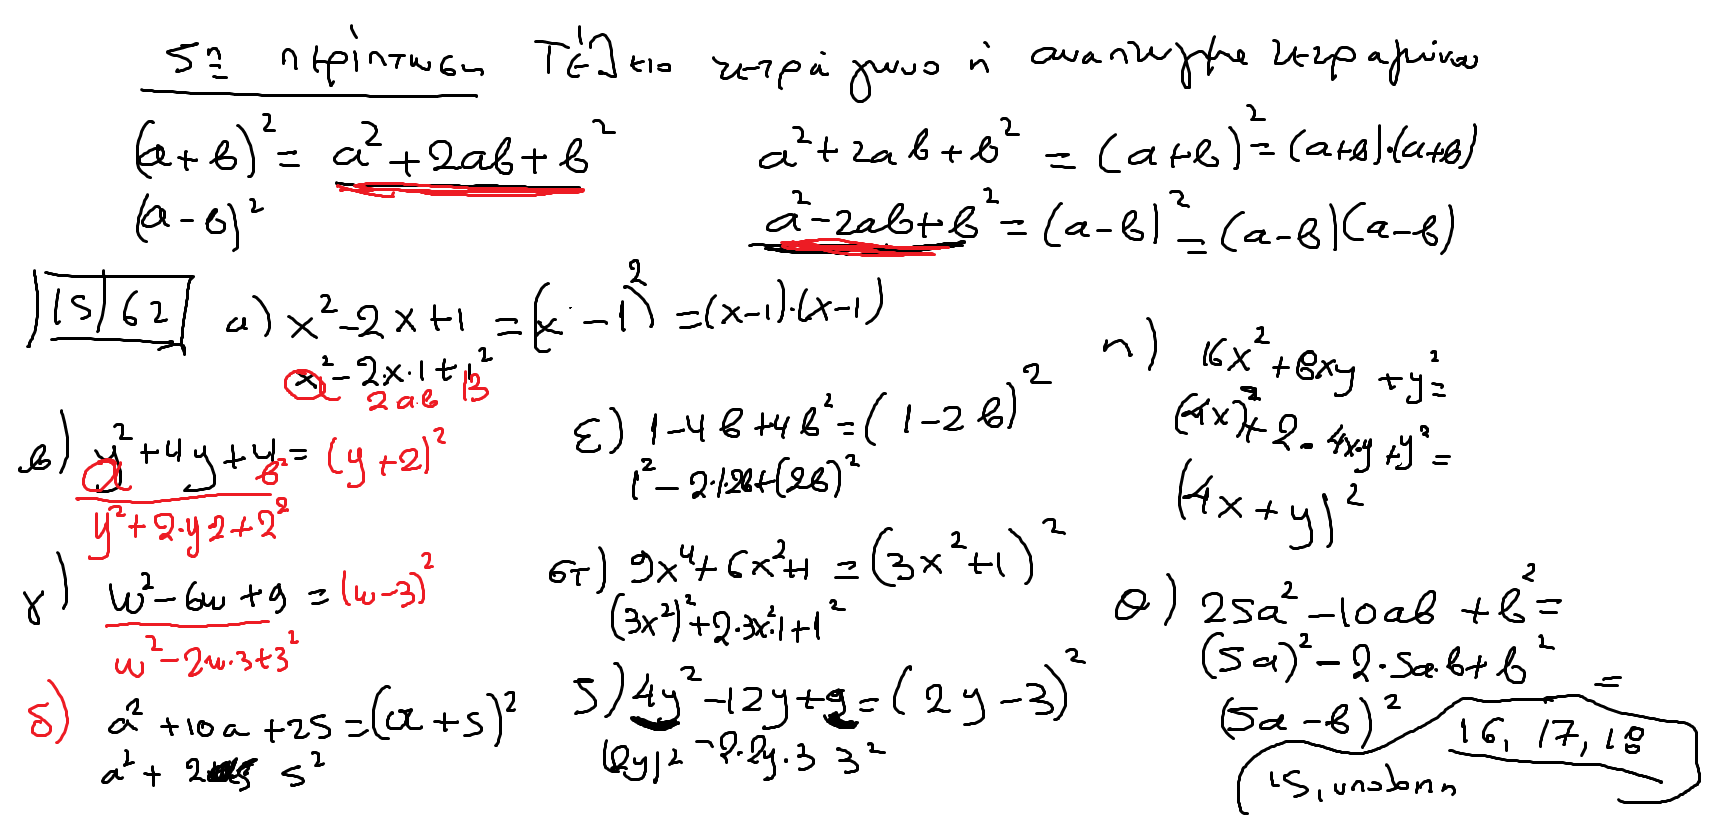 5η περίπτωση Τέλειο τετράγωνο ή ανάπτυγμα τετραγώνου
(a+b)² = a²+2ab+b²
(a-b)²
a²+2ab+b² = (a+b)² = (a+b)·(a+b)
a²-2ab+b² = (a-b)² = (a-b)(a-b)
15/62
α) x²-2x+1 = (x-1)² = (x-1)·(x-1)
x²-2·x·1+1²
a 2a·b b
β) y²+4y+4 = (y+2)²
a b²
y²+2·y2+2²
γ) w²-6w+9 = (w-3)²
w²-2w·3+3²
δ) a²+10a+25 = (a+5)²
a²+2a5 5²
ε) 1-4b+4b² = (1-2b)²
1²-2·1·2b+(2b)²
στ) 9x⁴+6x²+1 = (3x²+1)²
(3x²)²+2·3x²·1+1²
ζ) 4y²-12y+9 = (2y-3)²
(2y)²-2·2y·3 3²
η) 16x²+8xy+y²=
(4x)²+2·4x·y+y²=
(4x+y)²
θ) 25a²-10ab+b²=
(5a)²-2·5a·b+b² =
(5a-b)²
16, 17, 18
15, υπόλοιπη